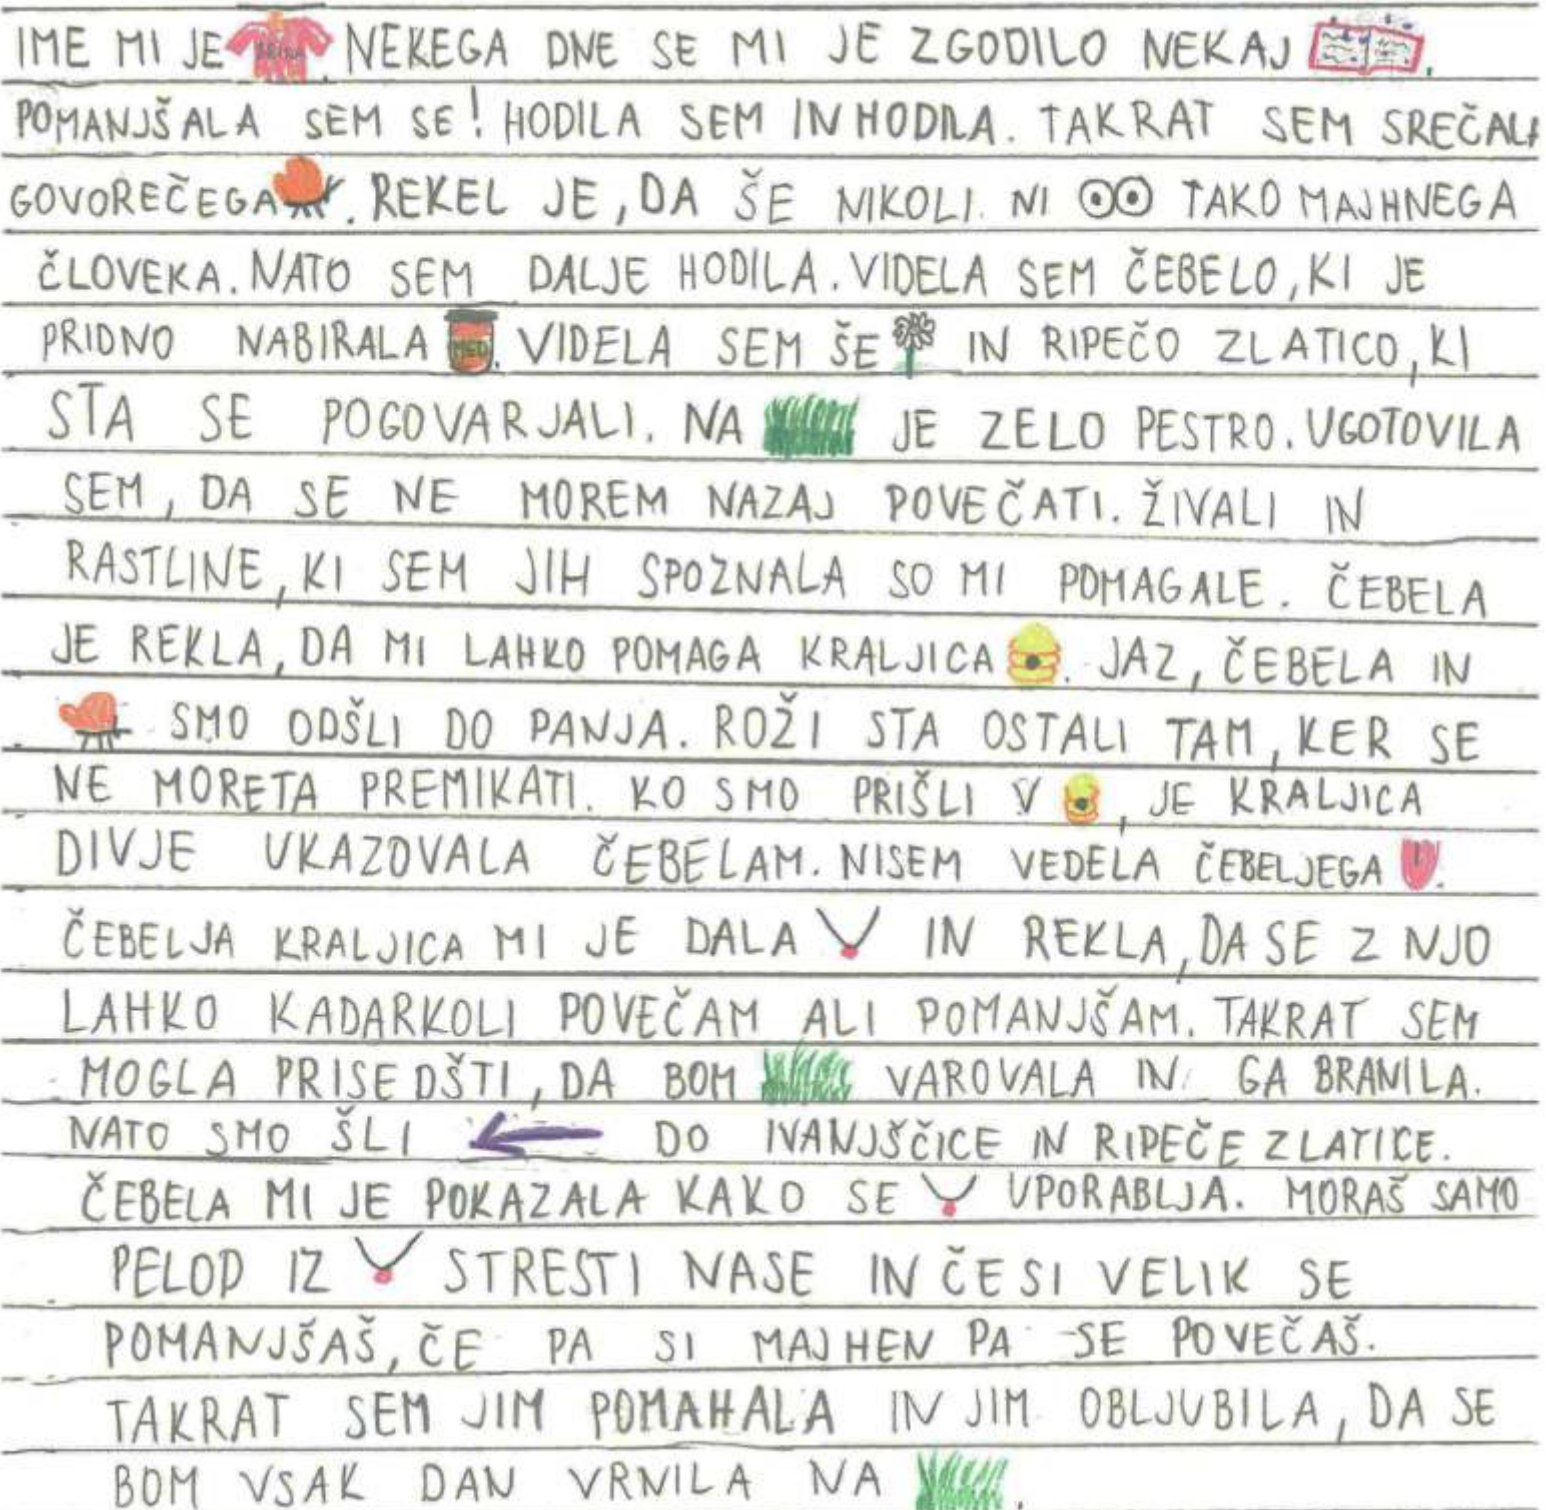 IME MI JE BRINA. NEKEGA DNE SE MI JE ZGODILO NEKAJ .
POMANJŠALA SEM SE! HODILA SEM IN HODILA. TAKRAT SEM SREČALA
GOVOREČEGA . REKEL JE, DA ŠE NIKOLI NI TAKO MAJHNEGA
ČLOVEKA. NATO SEM DALJE HODILA. VIDELA SEM ČEBELO, KI JE
PRIDNO NABIRALA MED. VIDELA SEM ŠE IN RIPEČO ZLATICO, KI
STA SE POGOVARJALI. NA JE ZELO PESTRO. UGOTOVILA
SEM, DA SE NE MOREM NAZAJ POVEČATI. ŽIVALI IN
RASTLINE, KI SEM JIH SPOZNALA SO MI POMAGALE. ČEBELA
JE REKLA, DA MI LAHKO POMAGA KRALJICA . JAZ, ČEBELA IN
SMO ODŠLI DO PANJA. ROŽI STA OSTALI TAM, KER SE
NE MORETA PREMIKATI. KO SMO PRIŠLI V , JE KRALJICA
DIVJE UKAZOVALA ČEBELAM. NISEM VEDELA ČEBELJEGA .
ČEBELJA KRALJICA MI JE DALA IN REKLA, DA SE Z NJO
LAHKO KADARKOLI POVEČAM ALI POMANJŠAM. TAKRAT SEM
MOGLA PRISEDŠTI, DA BOM VAROVALA IN GA BRANILA.
NATO SMO ŠLI DO IVANJŠČICE IN RIPEČE ZLATICE.
ČEBELA MI JE POKAZALA KAKO SE UPORABLJA. MORAŠ SAMO
PELOD IZ STRESTI NASE IN ČE SI VELIK SE
POMANJŠAŠ, ČE PA SI MAJHEN PA SE POVEČAŠ.
TAKRAT SEM JIM POMAHALA IN JIM OBLJUBILA, DA SE
BOM VSAK DAN VRNILA NA .